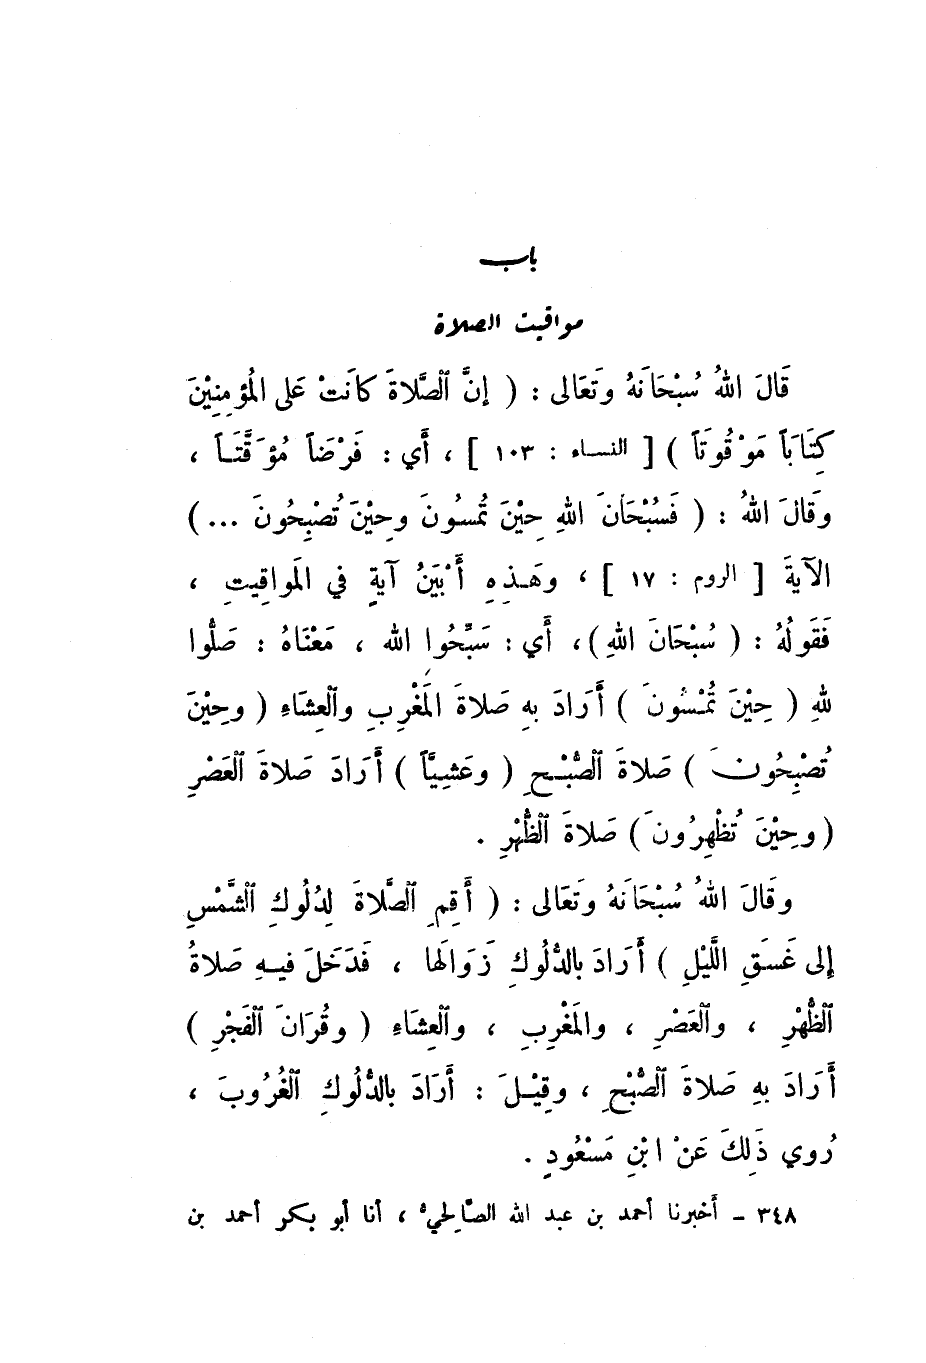 باب
مواقيت الصلاة
قَالَ اللهُ سُبْحَانَهُ وَتَعَالى : ( إنَّ ٱلصَّلاةَ كانَتْ عَلى المُؤمِنِيْنَ
كِتَاَباً مَوْقُوتَاً ) [ النساء : ١٠٣ ] ، أَي : فَرْضَاً مُؤَقَّتَـاً ،
وَقَالَ اللهُ : ( فَسُبْحَانَ اللهِ حِيْنَ تُمسُونَ وحِيْنَ تُصْبِحُونَ ... )
الآيةَ [ الروم : ١٧ ] ، وهَـذِهِ أَبْيَنُ آيةٍ في المَواقِيتِ ،
فَقَولُهُ : ( سُبْحَانَ اللهِ ) ، أَي : سَبِّحُوا الله ، مَعْنَاهُ : صَلُّوا
للهِ ( حِيْنَ تُمْسُونَ ) أَرَادَ بهِ صَلاةَ المَغْرِبِ وٱلعِشَاءِ ( وحِيْنَ
تُصْبِحُونَ ) صَلاةَ ٱلصُّبْـحِ ( وعَشِيَّاً ) أَرَادَ صَلاةَ ٱلعَصْرِ
( وحِيْنَ تُظْهِرُونَ ) صَلاةَ ٱلظُّهْرِ .
وقَالَ اللهُ سُبْحَانَهُ وتَعَالى : ( أَقِمِ ٱلصَّلاةَ لِدُلُوكِ ٱلشَّمْسِ
إلى غَسَقِ اللَّيْلِ ) أَرَادَ بالدُّلُوكِ زَوَالَها ، فَدَخَلَ فيـهِ صَلاةُ
ٱلظُّهْرِ ، وٱلعَصْرِ ، والمَغْرِبِ ، وٱلعِشَاءِ ( وقُرَانَ ٱلفَجْرِ )
أَرَادَ بهِ صَلاةَ ٱلصُّبْحِ ، وقِيْـلَ : أَرَادَ بالدُّلُوكِ ٱلغُرُوبَ ،
رُوي ذَلِكَ عَنْ ابْنِ مَسْعُودٍ .
٣٤٨ - أَخبرنا أحمد بن عبد الله الصَّالِحيُّ ، أنا أبو بكر أحمد بن